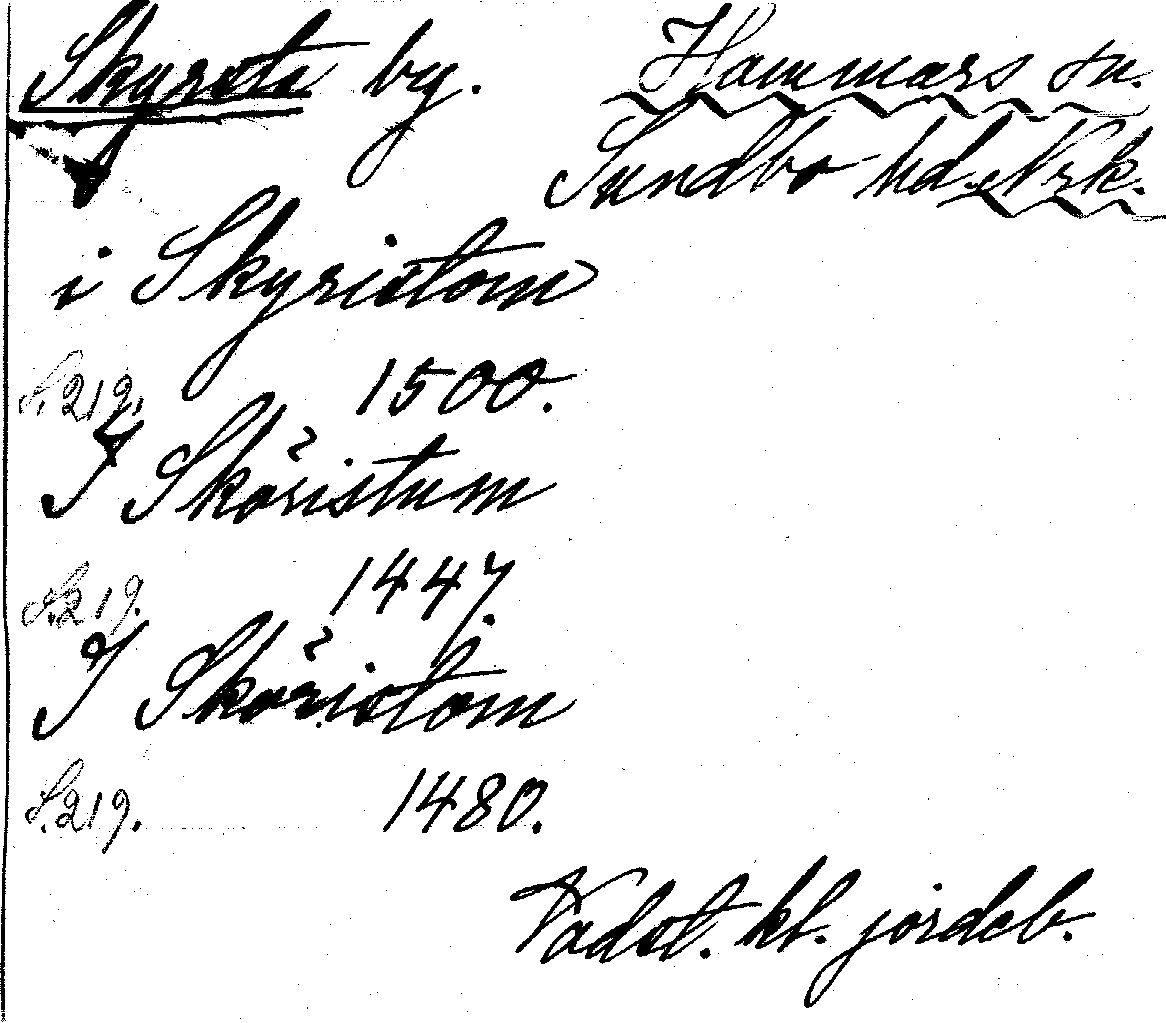 Skyrsta by. Hammars sn.
Sundbo hd. Nrk.
i Skyristom
S. 219. 1500.
I Sköristum
S. 219. 1447.
I Sköristom
S. 219. 1480.
Vadst. kl. jordeb.